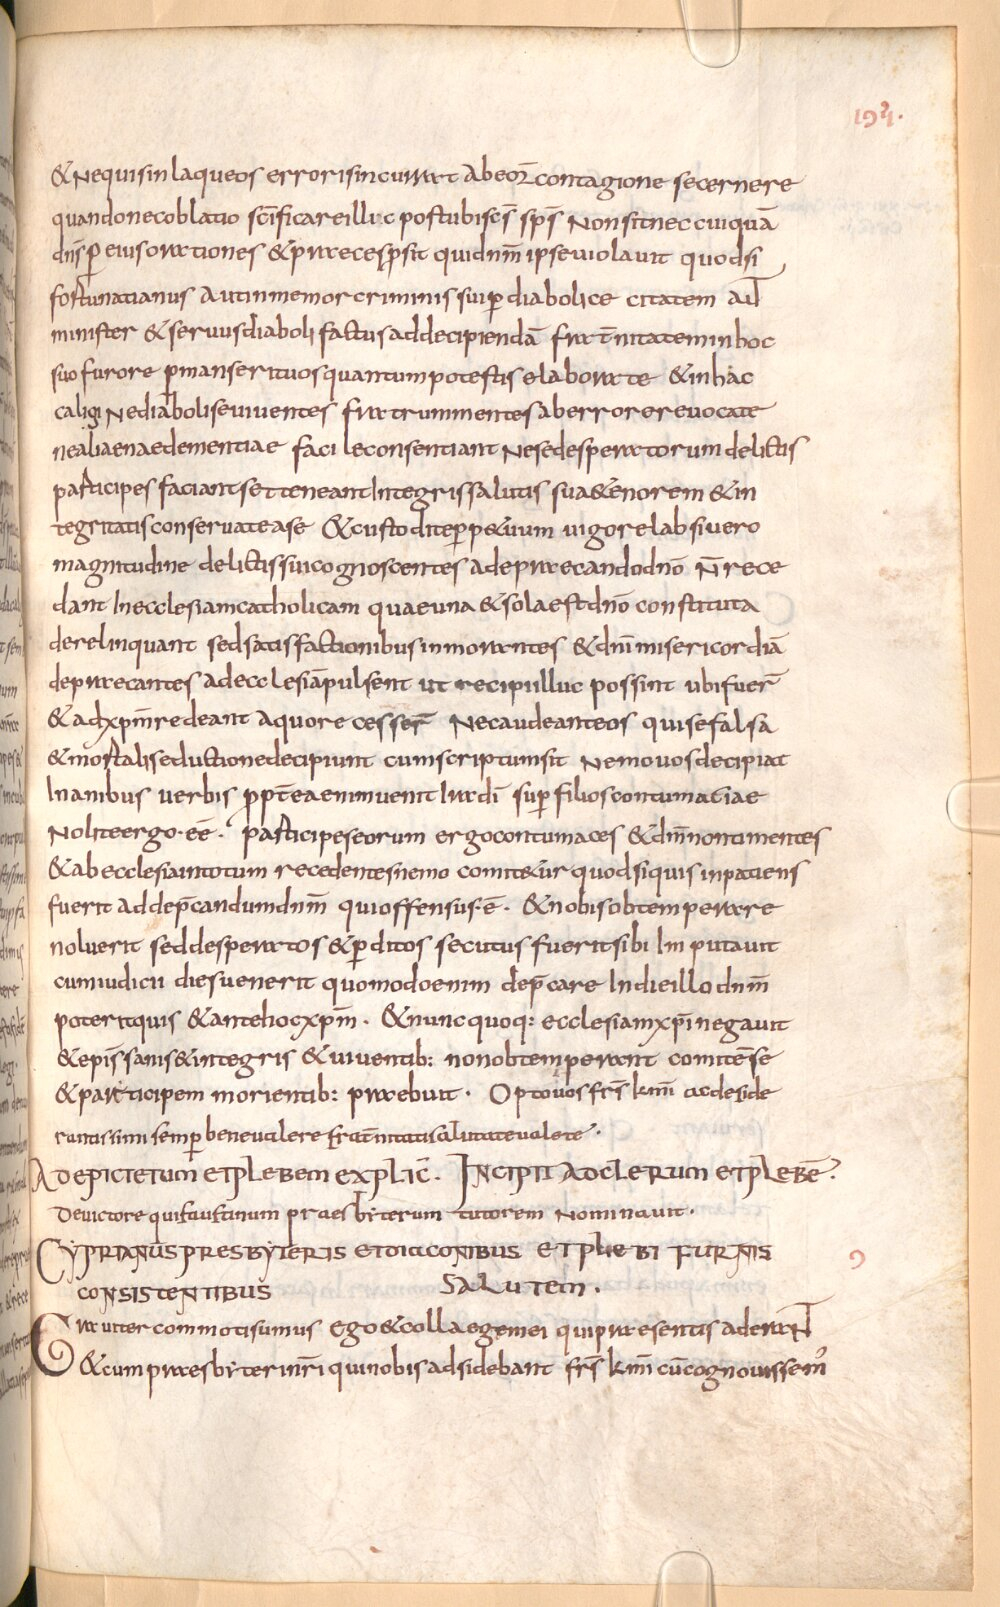 194.
& Nequis in laqueos erroris incurrat ab eoꝝ contagione secernere
quando nec oblatio scīficare illuc post ubi scs̄ sps̄ Non sit nec cuiquā
dns̄ ꝑ eius orationes & praeces ꝓsit qui dnm̄ ipse violauit quodsi
fortunatianus aut inmemor criminis sui ꝑ diabolice citatem aut
minister & seruus diaboli factus ad decipiendā frat̄nitatem in hoc
suo furore ꝑmanserit uos quantum potestis elaborate & in hac
caligiNe diaboli seuiventes fratrum mentes ab errore reuocate
ne alienae dementiae facile consentiant Nese desperatorum delictis
participes faciant sed teneant Integris salutis suae tenorem & in
tegritatis conseruatease & custodite ꝑp&uum uigore labsi uero
magnitudine delicti sui cognoscentes a depraecando dn̄o N̄ rece
dant In ecclesiam catholicam quae una & sola est dn̄o constituta
derelinquant sed satisfactionibus inmorantes & dnī misericordiā
depraecantes ad ecclesiā pulsent ut recipi illuc possint ubi fuer̄
& ad xp̄m redeant a quo recesser̄ Nec audeant eos qui se falsa
& mortali seductione decipiunt cum scriptum sit Nemo uos decipiat
Inanibus uerbis ꝓpt̄ea enim uenit Ira dī suꝑ filios contumaciae
Nolite ergo·eē· participes eorum ergo contumaces & dm̄ non timentes
& ab ecclesia in totum recedentes nemo comit&ur quodsi quis inpatiens
fuerit ad dep̄candum dnm̄ qui offensus·ē· & nobis obtemperare
noluerit sed desperatos & ꝑditos secutus fuerit sibi Inputauit
cum iudicii dies uenerit quomodo enim dep̄care In die illo dnm̄
poterit quis & ante hoc xp̄m· & nunc quoq: ecclesiam xp̄i negauit
& epis̄ sanis & integris & uiuentib: non obtemperant comitēse
& participem morientib: praebuit· Opto uos frs̄ km̄ ac deside
rantissimi semꝑ bene ualere frat̄nitati salutate ualete·
Ad epictetum et plebem explic̄. Incipit ad clerum et plebē.
De uictore qui faustinum praesbyterum tutorem Nominauit.
Cyprianus presbyteris et diaconibus et plebi furnis
consistentibus salutem.
Grauiter commoti sumus ego & collaegemei qui praesentis aderant
& cum praesbyteri nr̄i qui nobis adsidebant frs̄ km̄ cū cognouissem᾽